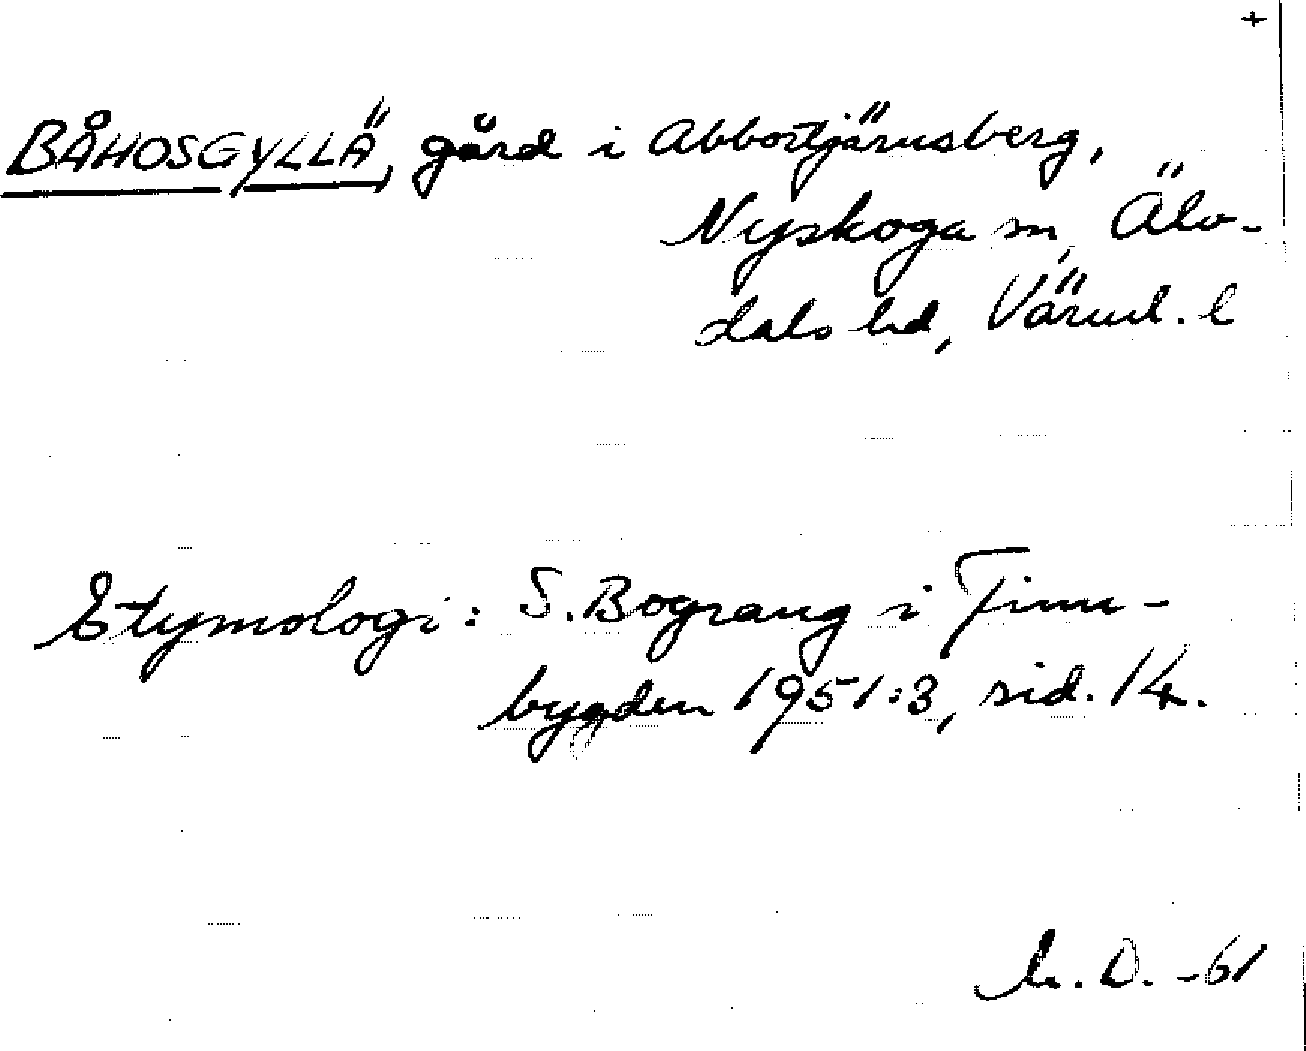 +
BÅHOSGYLLÄ, gård i Abbortjärnsberg,
Nyskoga sn, Älv-
dals hd, Värml. l
Etymologi: S. Bograng i Finn-
bygden 1951:3, sid. 14.
L. D. -61